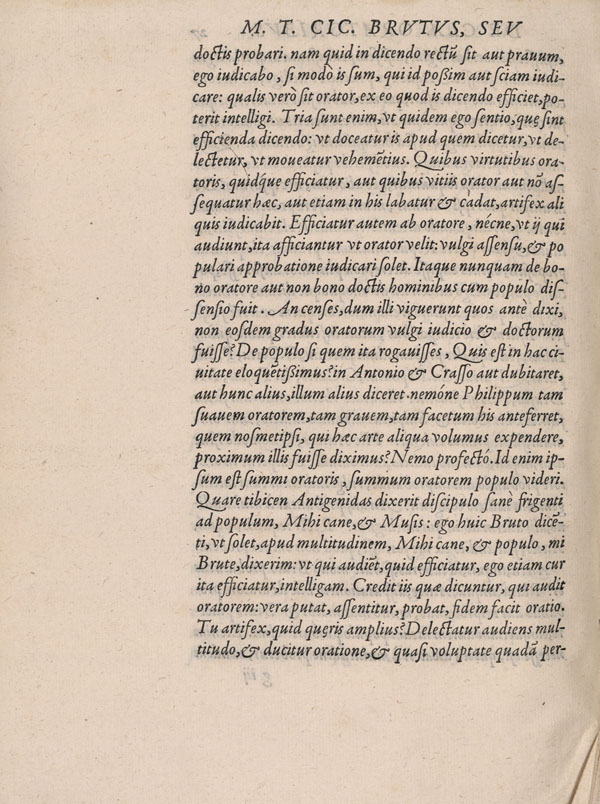 M. T. CIC. BRVTVS, SEV
doctis probari. nam quid in dicendo rectũ sit aut prauum,
ego iudicabo, si modò is sum, qui id poßim aut sciam iudi-
care: qualis verò sit orator, ex eo quod is dicendo efficiet, po-
terit intelligi. Tria sunt enim, vt quidem ego sentio, quę sint
efficienda dicendo: vt doceatur is apud quem dicetur, vt de-
lectetur, vt moueatur vehemẽtius. Quibus virtutibus ora-
toris, quidq́ue efficiatur, aut quibus vitiis orator aut nõ as-
sequatur hæc, aut etiam in his labatur & cadat, artifex ali
quis iudicabit. Efficiatur autem ab oratore, nécne, vt ij qui
audiunt, ita afficiantur vt orator velit: vulgi assensu, & po
pulari approbatione iudicari solet. Itaque nunquam de bo-
no oratore aut non bono doctis hominibus cum populo dis-
sensio fuit. An censes, dum illi viguerunt quos antè dixi,
non eosdem gradus oratorum vulgi iudicio & doctorum
fuisse? De populo si quem ita rogauisses, Quis est in hac ci-
uitate eloquẽtißimus? in Antonio & Crasso aut dubitaret,
aut hunc alius, illum alius diceret. nemóne Philippum tam
suauem oratorem, tam grauem, tam facetum his anteferret,
quem nosmetipsi, qui hæc arte aliqua volumus expendere,
proximum illis fuisse diximus? Nemo profectó. Id enim ip-
sum est summi oratoris, summum oratorem populo videri.
Quare tibicen Antigenidas dixerit discipulo sanè frigenti
ad populum, Mihi cane, & Musis: ego huic Bruto dicẽ-
ti, vt solet, apud multitudinem, Mihi cane, & populo, mi
Brute, dixerim: vt qui audiẽt, quid efficiatur, ego etiam cur
ita efficiatur, intelligam. Credit iis quæ dicuntur, qui audit
oratorem: vera putat, assentitur, probat, fidem facit oratio.
Tu artifex, quid quęris amplius? Delectatur audiens mul-
titudo, & ducitur oratione, & quasi voluptate quadã per-